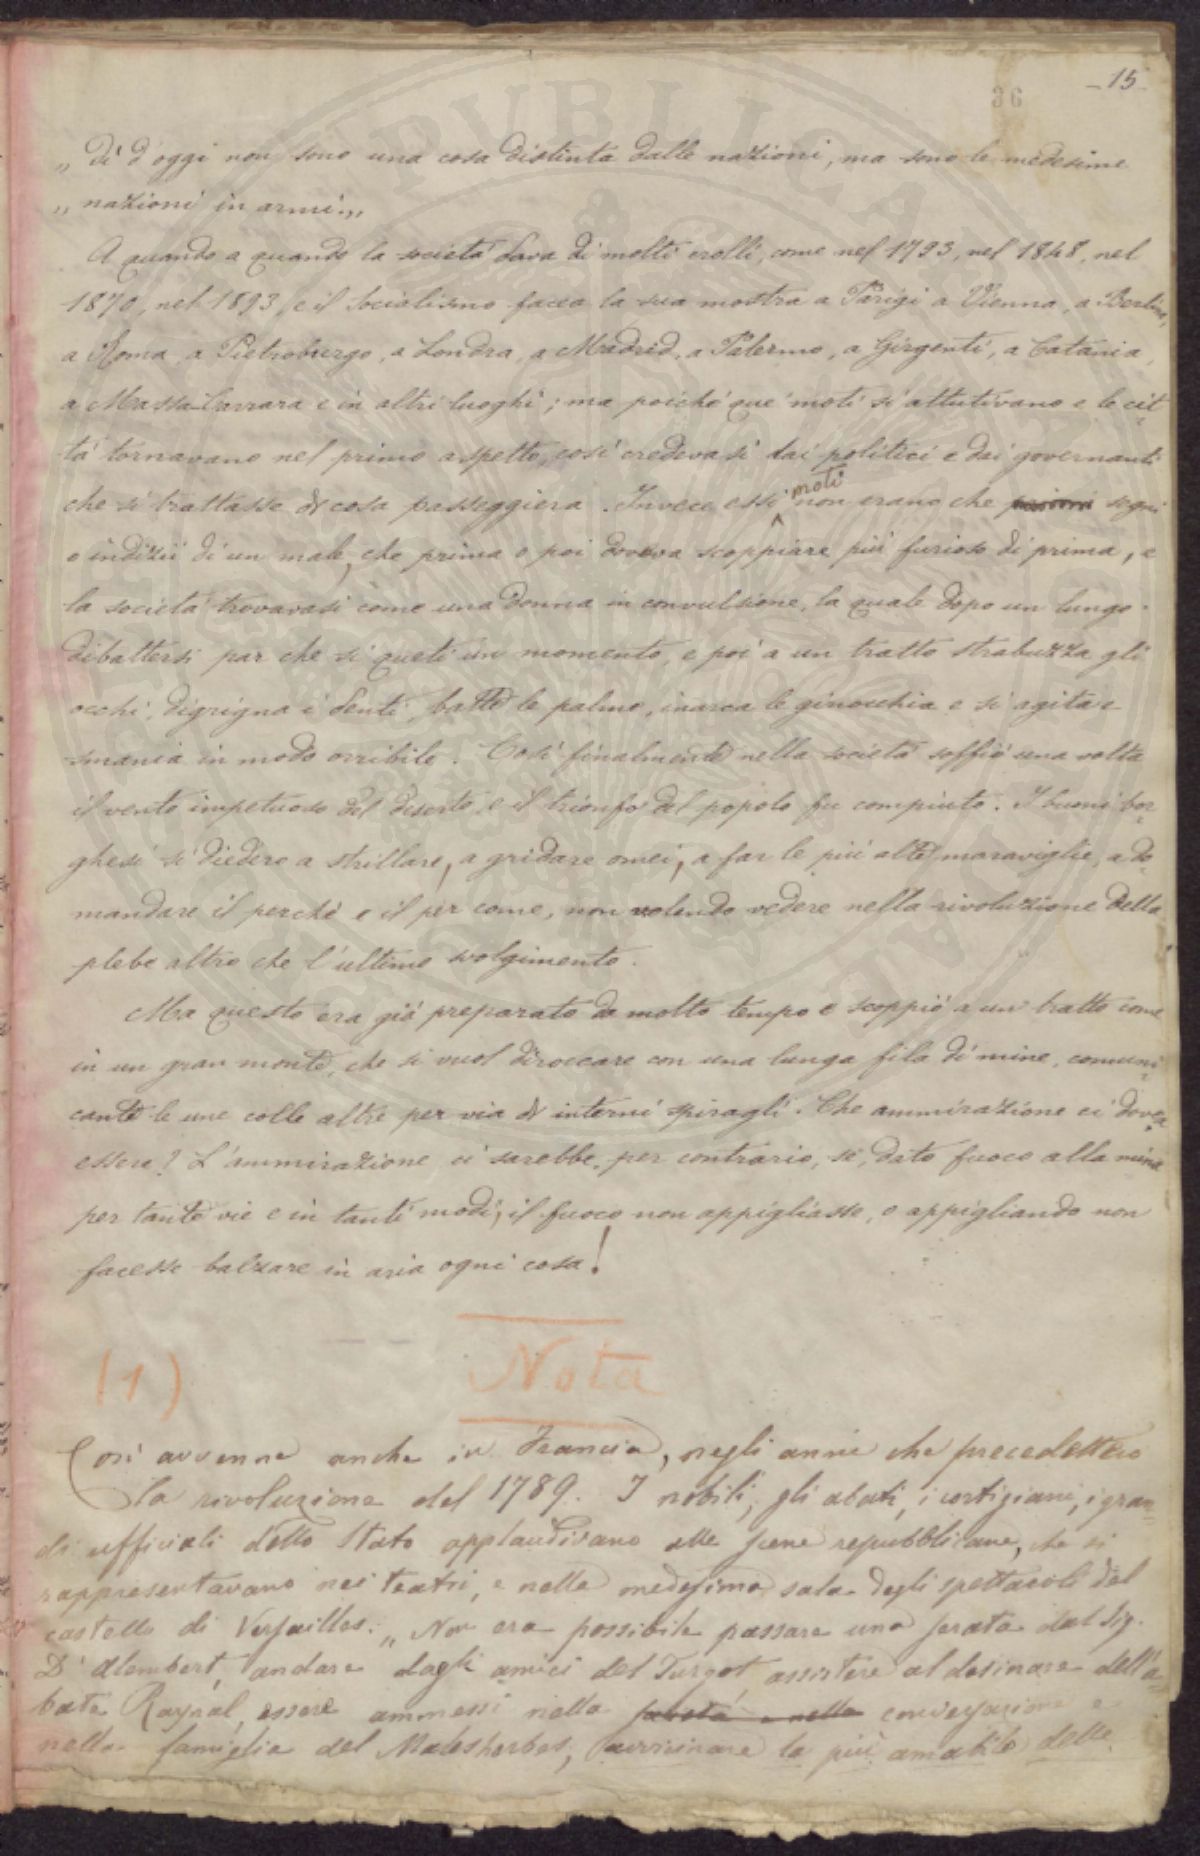 36
-15-
„ dì d'oggi non sono una cosa distinta dalle nazioni, ma sono le medesime
„ nazioni in armi.„
A quando a quando la società dava di molti crolli, come nel 1793, nel 1848, nel
1870, nel 1893, e il Socialismo facea la sua mostra a Parigi a Vienna, a Berlino,
a Roma, a Pietroburgo, a Londra, a Madrid, a Palermo, a Girgenti, a Catania,
a Massa-Carrara e in altri luoghi; ma poiché que' moti si attutivano e le cit-
tà tornavano nel primo aspetto, così credevasi dai politici e dai governanti
che si trattasse di cosa passeggiera. Invece essi moti non erano che segni
o indizii di un male, che prima o poi doveva scoppiare più furioso di prima, e
la società trovavasi come una donna in convulsione, la quale dopo un lungo
dibattersi par che si queti un momento, e poi a un tratto strabuzza gli
occhi, digrigna i denti, batte le palme, inarca le ginocchia e si agita e
smania in modo orribile. Così finalmente nella società soffiò una volta
il vento impetuoso del deserto, e il trionfo del popolo fu compiuto. I buoni bor-
ghesi si diedero a strillare, a gridare omei, a far le più alte maraviglie, a do-
mandare il perché e il per come, non volendo vedere nella rivoluzione della
plebe altro che l'ultimo svolgimento.
Ma questo era già preparato da molto tempo e scoppiò a un tratto come
in un gran monte, che si vuol diroccare con una lunga fila di mine, comuni-
cante le une colle altre per via di interni spiragli. Che ammirazione ci dovea
essere? L'ammirazione ci sarebbe, per contrario, se, dato fuoco alla mina
per tante vie e in tanti modi, il fuoco non appigliasse, o appigliando non
facesse balzare in aria ogni cosa!
(1) Nota
Così avvenne anche in Francia, negli anni che precedettero
la rivoluzione del 1789. I nobili, gli abati, i cortigiani, i gran-
di ufficiali dello Stato applaudivano alle scene repubblicane, che si
rappresentavano nei teatri, e nella medesima sala degli spettacoli del
castello di Versailles. „ Non era possibile passare una serata dal Sig.
D'Alembert, andare dagli amici del Turgot, assistere al desinare dell'a-
bate Raynal, essere ammessi nella società e nella conversazione e
nella famiglia del Malesherbes, avvicinare la più amabile delle